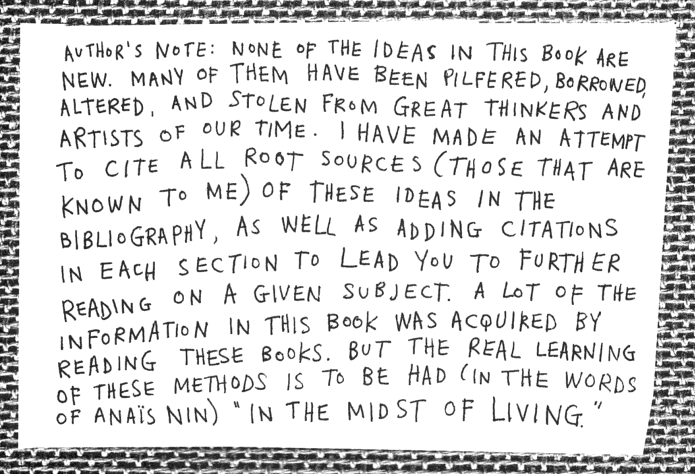 AUTHOR'S NOTE: NONE OF THE IDEAS IN THIS BOOK ARE
NEW. MANY OF THEM HAVE BEEN PILFERED, BORROWED,
ALTERED, AND STOLEN FROM GREAT THINKERS AND
ARTISTS OF OUR TIME. I HAVE MADE AN ATTEMPT
TO CITE ALL ROOT SOURCES (THOSE THAT ARE
KNOWN TO ME) OF THESE IDEAS IN THE
BIBLIOGRAPHY, AS WELL AS ADDING CITATIONS
IN EACH SECTION TO LEAD YOU TO FURTHER
READING ON A GIVEN SUBJECT. A LOT OF THE
INFORMATION IN THIS BOOK WAS ACQUIRED BY
READING THESE BOOKS. BUT THE REAL LEARNING
OF THESE METHODS IS TO BE HAD (IN THE WORDS
OF ANAÏS NIN) "IN THE MIDST OF LIVING."